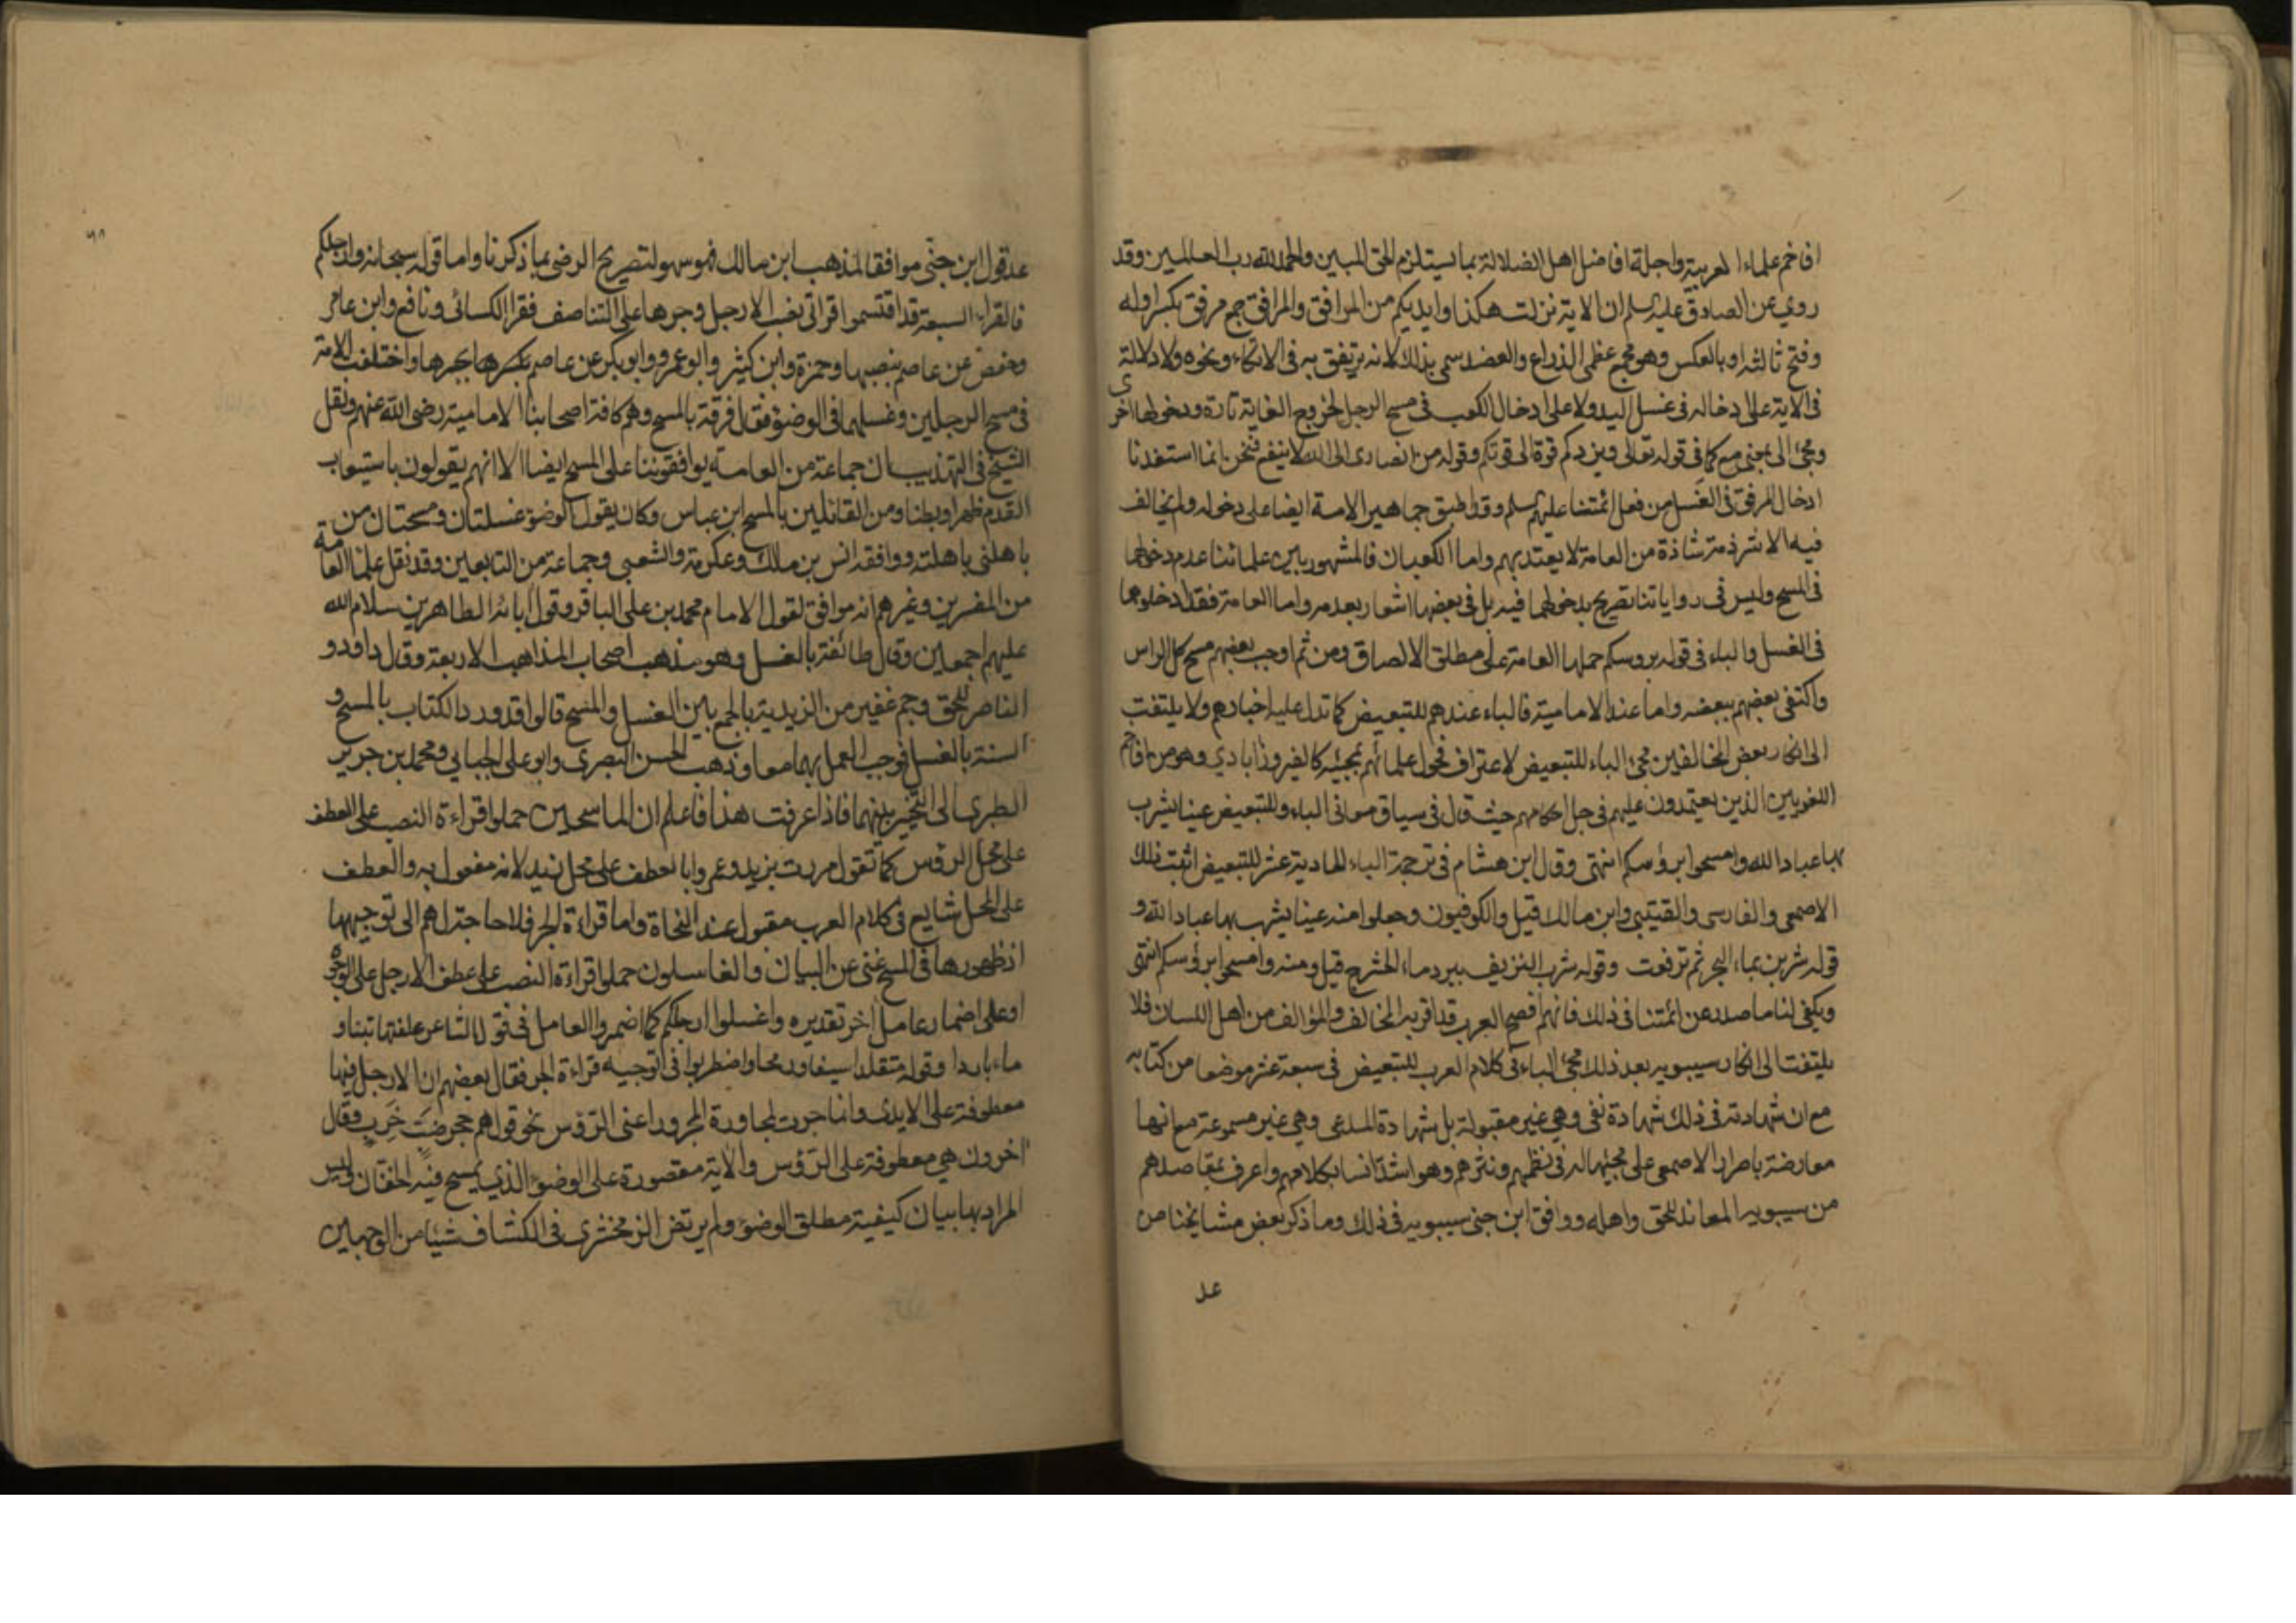 افاخم علماء العربية واجلة افاضل اهل الضلالة بما يستلزم الحق المبين والحمد لله رب العالمين وقد
روي عن الصادق عليه سلم ان الاية نزلت هكذا وايديكم من المرافق والمرافق جمع مرفق بكسر اوله
وفتح ثالثه او بالعكس وهو مجمع عظمي الذراع والعضد سمي بذلك لانه يرتفق به في الاتكاء ونحوه ولا دلالة
في الاية على ادخاله في غسل اليد ولا على ادخال الكعب في مسح الرجل لخروج الغاية تارة ودخولها اخرى
ومجئ الى بمعنى مع كما في قوله تعالى ويزدكم قوة الى قوتكم وقوله من انصاري الى الله لا ينفع فنحن انما استفدنا
ادخال المرفق في الغسل من فعل ائمتنا عليهم سلم وقد اطبق جماهير الامة ايضا على دخوله ولم يخالف
فيه الا شرذمة شاذة من العامة لا يعتد بهم واما الكعبان فالمشهور بين علمائنا عدم دخولهما
في المسح وليس في رواياتنا تصريح بدخولهما فيه بل في بعضها اشعار بعدمه واما العامة فقد ادخلوهما
في الغسل والباء في قوله بروسكم حملها العامة على مطلق الالصاق ومن ثم اوجب بعضهم مسح كل الراس
واكتفى بعضهم ببعضه واما عند الامامية فالباء عندهم للتبعيض كما تدل عليه اخبارهم ولا يلتفت
الى انكار بعض المخالفين مجئ الباء للتبعيض لاعتراف فحول علمائهم بمجيئه كالفيروزابادي وهو من افاخم
اللغويين الذين يعتمدون عليهم في جل احكامهم حيث قال في سياق معاني الباء وللتبعيض عينا يشرب
بها عباد الله وامسحوا برؤسكم انتهى وقال ابن هشام في ترجمة الباء الحادية عشر للتبعيض اثبت ذلك
الاصمعي والفارسي والقيتبي وابن مالك قيل والكوفيون وجعلوا منه عينا يشرب بها عباد الله و
قوله شربن بماء البحر ثم ترفعت وقوله شرب النزيف ببرد ماء الحشرج قيل ومنه وامسحوا برؤسكم انتهى
ويكفي لنا ما صدر عن ائمتنا في ذلك فانهم افصح العرب قد اقر به المخالف والمؤالف من اهل اللسان فلا
يلتفت الى انكار سيبويه بعد ذلك مجئ الباء في كلام العرب للتبعيض في سبعة عشر موضعا من كتابه
مع ان شهادته في ذلك شهادة نفي وهي غير مقبولة بل شهادة المدعى وهي غير مسموعة مع انها
معارضة باصرار الاصمعي على مجيئها له في نظمهم ونثرهم وهو اشد انسا بكلامهم واعرف بمقاصدهم
من سيبويه المعاند للحق واهله ووافق ابن جني سيبويه في ذلك وما ذكر بعض مشايخنا من
عد
عد قول ابن جني موافقا لمذهب ابن مالك فهو سهو لتصريح الرضي بما ذكرنا واما قوله سبحانه وارجلكم
فالقراء السبعة قد اقتسموا قراتي نصب الارجل وجرها على التناصف فقرا الكسائي ونافع وابن عامر
وحفص عن عاصم بنصبها وحمزة وابن كثير وابو عمرو وابو بكر عن عاصم بجرها واختلفت الامة
في مسح الرجلين وغسلهما في الوضوء فقال فرقة بالمسح وهم كافة اصحابنا الامامية رضي الله عنهم ونقل
الشيخ في التهذيب ان جماعة من العامة يوافقوننا على المسح ايضا الا انهم يقولون باستيعاب
القدم ظهرا وبطنا ومن القائلين بالمسح ابن عباس وكان يقول الوضوء غسلتان ومسحتان من
باهلني باهلته ووافقه انس بن مالك وعكرمة والشعبي وجماعة من التابعين وقد نقل علما العامة
من المفسرين وغيرهم انه موافق لقول الامام محمد بن علي الباقر وقول ابائه الطاهرين سلام الله
عليهم اجمعين وقال طائفة بالغسل وهو مذهب اصحاب المذاهب الاربعة وقال داود و
الناصر للحق وجم غفير من الزيدية بالجمع بين الغسل والمسح قالوا قد ورد الكتاب بالمسح و
السنة بالغسل فوجب العمل بهما معا وذهب الحسن البصري وابو علي الجبايي ومحمد بن جرير
الطبري الى التخيير بينهما فاذا عرفت هذا فاعلم ان الماسحين حملوا قراءة النصب على العطف
على محل الرؤس كما تقول مررت بزيد وعمروا بالعطف على محل زيد لانه مفعول به والعطف
على المحل شايع في كلام العرب مقبول عند النحاة واما قراءة الجر فلا حاجة لهم الى توجيهها
اذ ظهورها في المسح غني عن البيان والغاسلون حملوا قراءة النصب على عطف الارجل على الوجوه
او على اضمار عامل اخر تقديره واغسلوا ارجلكم كما اضمروا العامل في قول الشاعر علفتها تبنا و
ماء باردا وقوله متقلدا سيفا ورمحا واضطربوا في توجيه قراءة الجر فقال بعضهم ان الارجل فيها
معطوفة على الايدي وانما جرت لمجاورة المجرور اعني الرؤس نحو قولهم جحر ضب خرب وقال
اخرون هي معطوفة على الرؤس والاية مقصورة على الوضوء الذي يمسح فيه الخفان وليس
المراد بها بيان كيفية مطلق الوضوء ولم يرتض الزمخشري في الكشاف شيئا من الوجهين